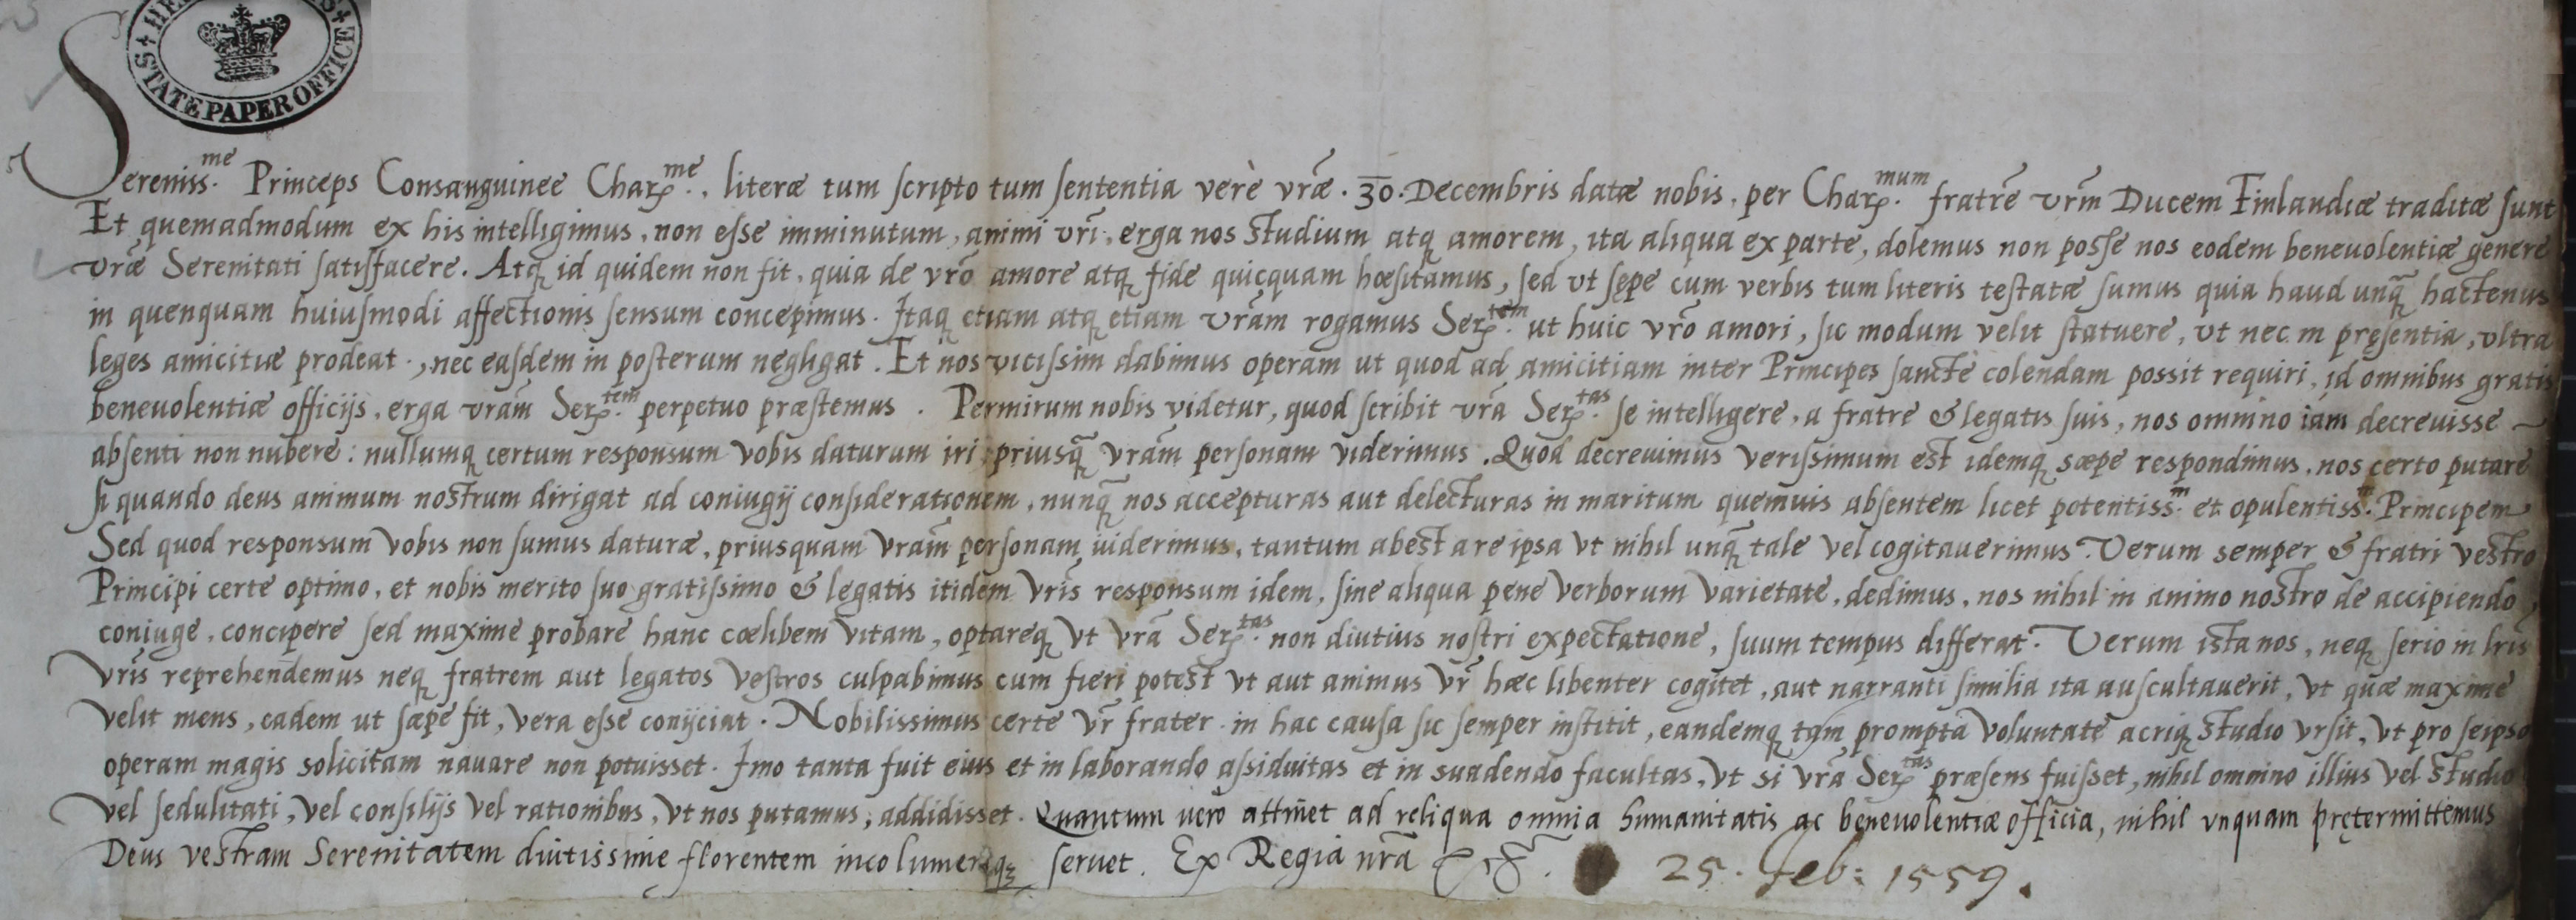 STATE PAPER OFFICE
Sereniss.me Princeps Consanguinee Char.me, literæ tum scripto tum sententia verè vræ̃ .30. Decembris datæ nobis, per Char.mum fratrẽ vrm̃ Ducem Finlandiæ traditæ sunt
Et quemadmodum ex his intelligimus, non esse imminutum, animi vrĩ, erga nos studium atq amorem, ita aliqua ex parte, dolemus non posse nos eodem beneuolentiæ genere
vræ̃ Serenitati satisfacere. Atq id quidem non fit, quia de vrõ amore atq fide quicquam hæsitamus, sed vt sępe cum verbis tum literis testatæ sumus quia haud unq̃ hactenus
in quenquam huiusmodi affectionis sensum concepimus. Itaq etiam atq etiam vrãm rogamus Ser.tem ut huic vrõ amori, sic modum velit statuere, vt nec in pręsentia, vltra
leges amicitiæ prodeat, nec easdem in posterum negligat. Et nos vicissim dabimus operam ut quod ad amicitiam inter Principes sanctè colendam possit requiri, id omnibus gratis
beneuolentiæ officijs, erga vrãm Ser.tem perpetuo præstemus. Permirum nobis videtur, quod scribit vrã Ser.tas se intelligere, a fratre & legatis suis, nos omnino iam decreuisse
absenti non nubere: nullumq certum responsum vobis daturum iri priusq̃ vrãm personam viderimus. Quod decreuimus verissimum est idemq sæpe respondimus, nos certo putare
si quando deus animum nostrum dirigat ad coniugij considerationem, nunq̃ nos accepturas aut delecturas in maritum quemuis absentem licet potentiss.m et opulentiss.m Principem
Sed quod responsum vobis non sumus daturæ, priusquam vrãm personam uiderimus, tantum abest a re ipsa vt nihil unq̃ tale vel cogitauerimus. Verum semper & fratri vestro
Principi certe optimo, et nobis merito suo gratissimo & legatis itidem vrĩs responsum idem, sine aliqua pene verborum varietate, dedimus, nos nihil in animo nostro de accipiendo
coniuge, concipere sed maxime probare hanc cœlibem vitam, optareq vt vrã Ser.tas non diutius nostri expectatione, suum tempus differat. Verum ista nos, neq serio in lrĩs
vrĩs reprehendemus neq fratrem aut legatos vestros culpabimus cum fieri potest vt aut animus vr̃ hæc libenter cogitet, aut narranti similia ita auscultauerit, vt quæ maxime
velit mens, eadem ut sæpe fit, vera esse conijciat. Nobilissimus certe vr̃ frater in hac causa sic semper institit, eandemq tam prompta voluntate acriq studio vrsit, vt pro seipso
operam magis solicitam nauare non potuisset. Imo tanta fuit eius et in laborando assiduitas et in suadendo facultas, vt si vrã Ser.tas præsens fuisset, nihil omnino illius vel studio
vel sedulitati, vel consilijs vel rationibus, vt nos putamus, addidisset. Quantum uero attinet ad reliqua omnia humanitatis ac beneuolentiæ officia, nihil vnquam prętermittemus
Deus vestram Serenitatem diutissimę florentem incolumemq seruet. Ex Regia nrã 25. feb: 1559.